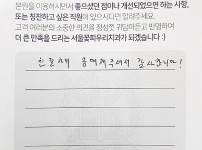 본원을 이용하시면서 좋으셨던 점이나 개선되었으면 하는 사항,
또는 칭찬하고 싶은 직원이 있으시다면 알려주세요.
고객 여러분의 소중한 의견을 정성껏 귀담아듣고 반영하여
더 큰 만족을 드리는 서울꽃피우리치과가 되겠습니다 :)
친절하게 응대해주셔서 감사합니다!